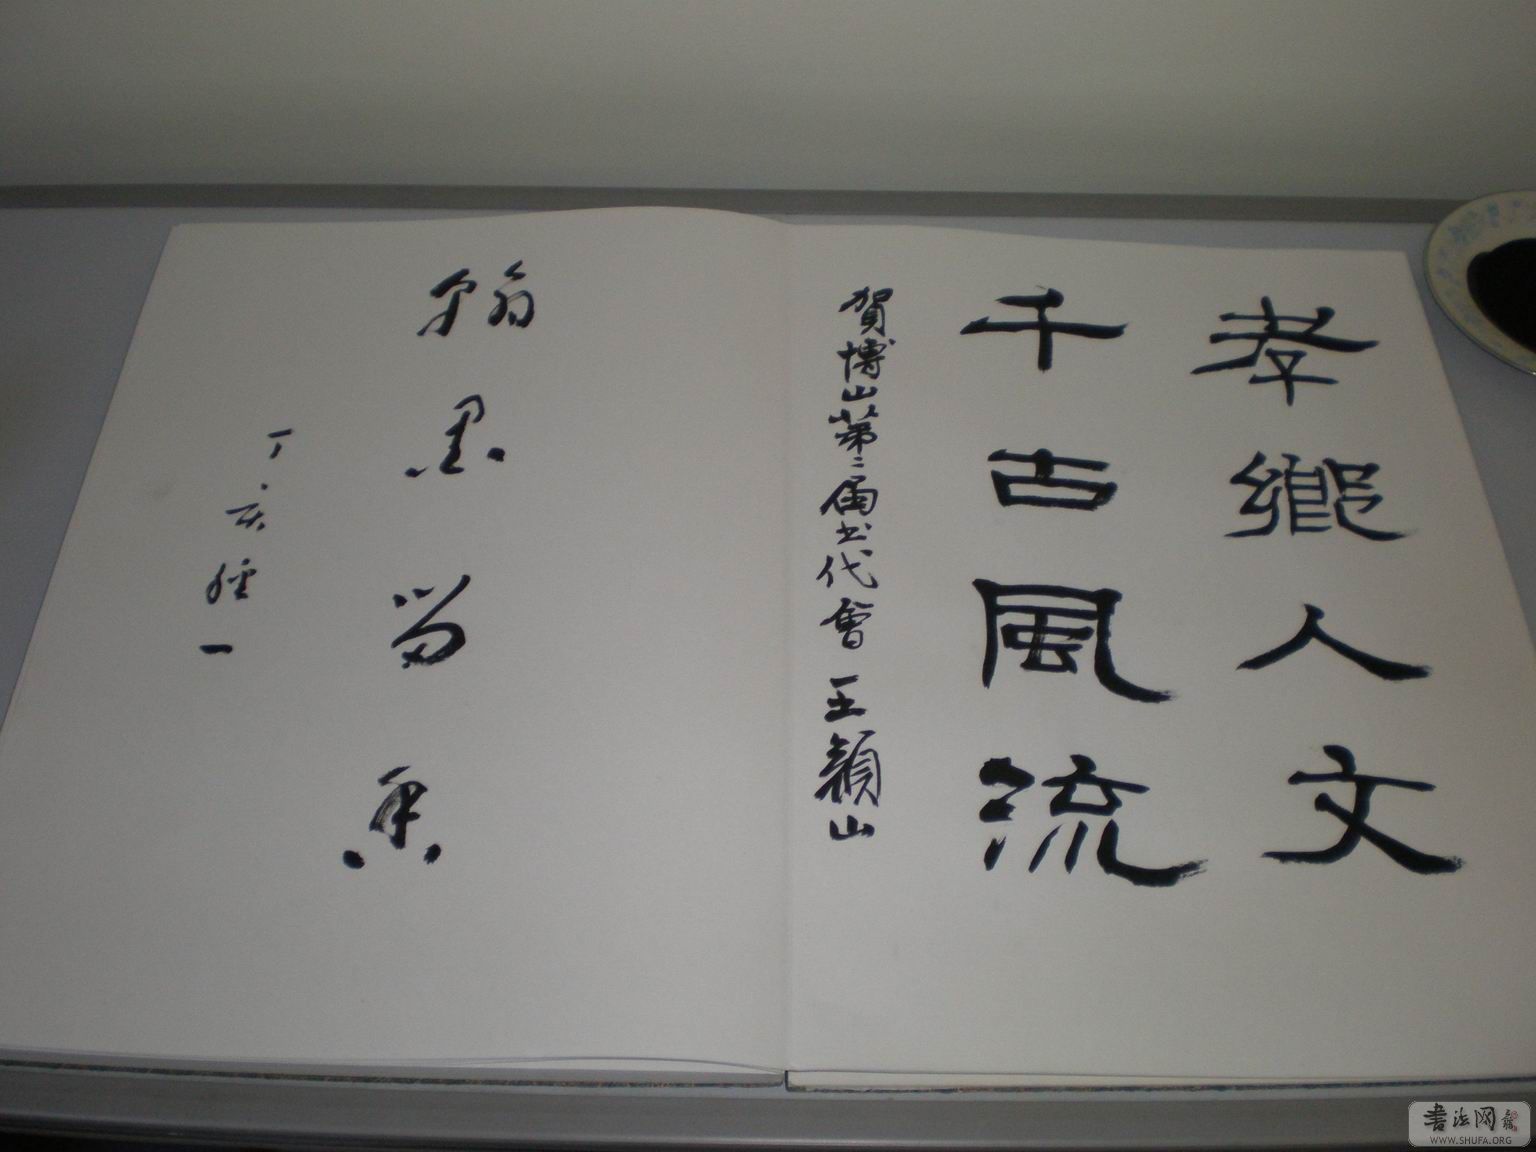 孝鄉人文
千古風流
賀博山第二届书代會 王颖山
翰墨留香
丁亥
一
书法网
WWW.SHUFA.ORG